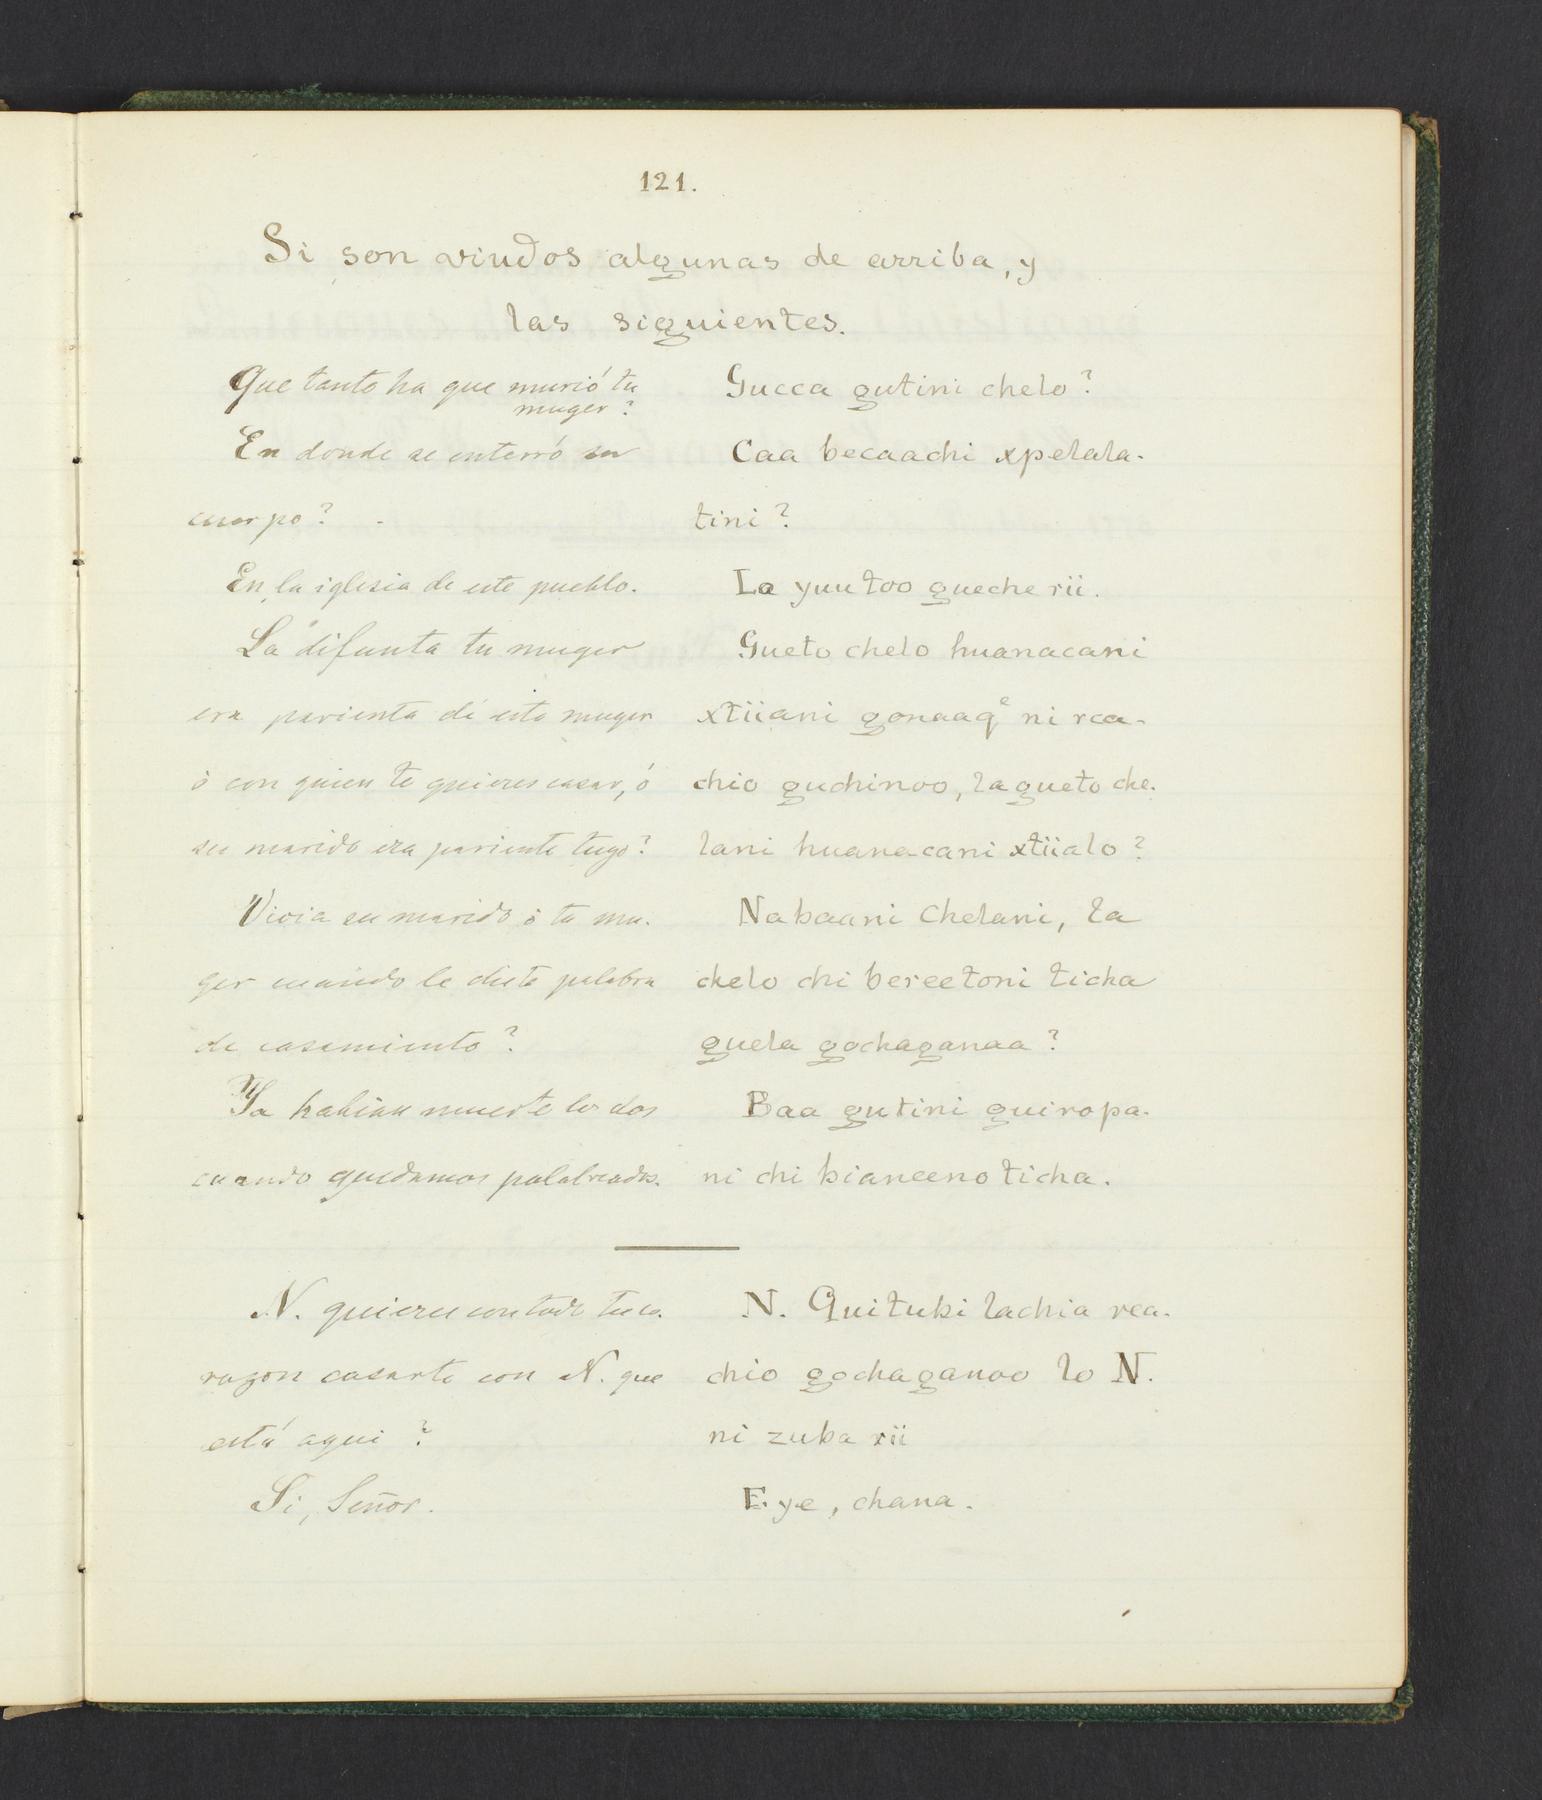 121.
Si son viudos algunas de arriba, y
las siguientes.
Que tanto ha que murió tu
muger?
Gucca gutini chelo?
En donde se enterró su
Caa becaachi xpelala-
cuerpo?
tini?
En la iglesia de este pueblo.
Lo yuutoo gueche rii.
La difunta tu muger
Gueto chelo huanacani
era parienta de esta muger
xtiiani gonaaqe ni rca-
ó con quien te quieres casar, ó
chio guchinoo, la gueto che-
su marido era pariente tuyo?
lani huanacani xtiialo?
Vivia su marido ó tu mu-
Nabaani Chelani, la
ger cuando le diste palabra
chelo chi bereetoni ticha
de casamiento?
guela gochaganaa?
Ya habian muerto los dos
Baa gutini guiropa-
cuando quedamos palabreados.
ni chi bianeeno ticha.
N. quieres con todo tu co-
N. Quitubi lachia rca-
razon casarte con N. que
chio gochaganoo lo N.
está aqui?
ni zuba rii
Si, Señor.
Eye, chana.